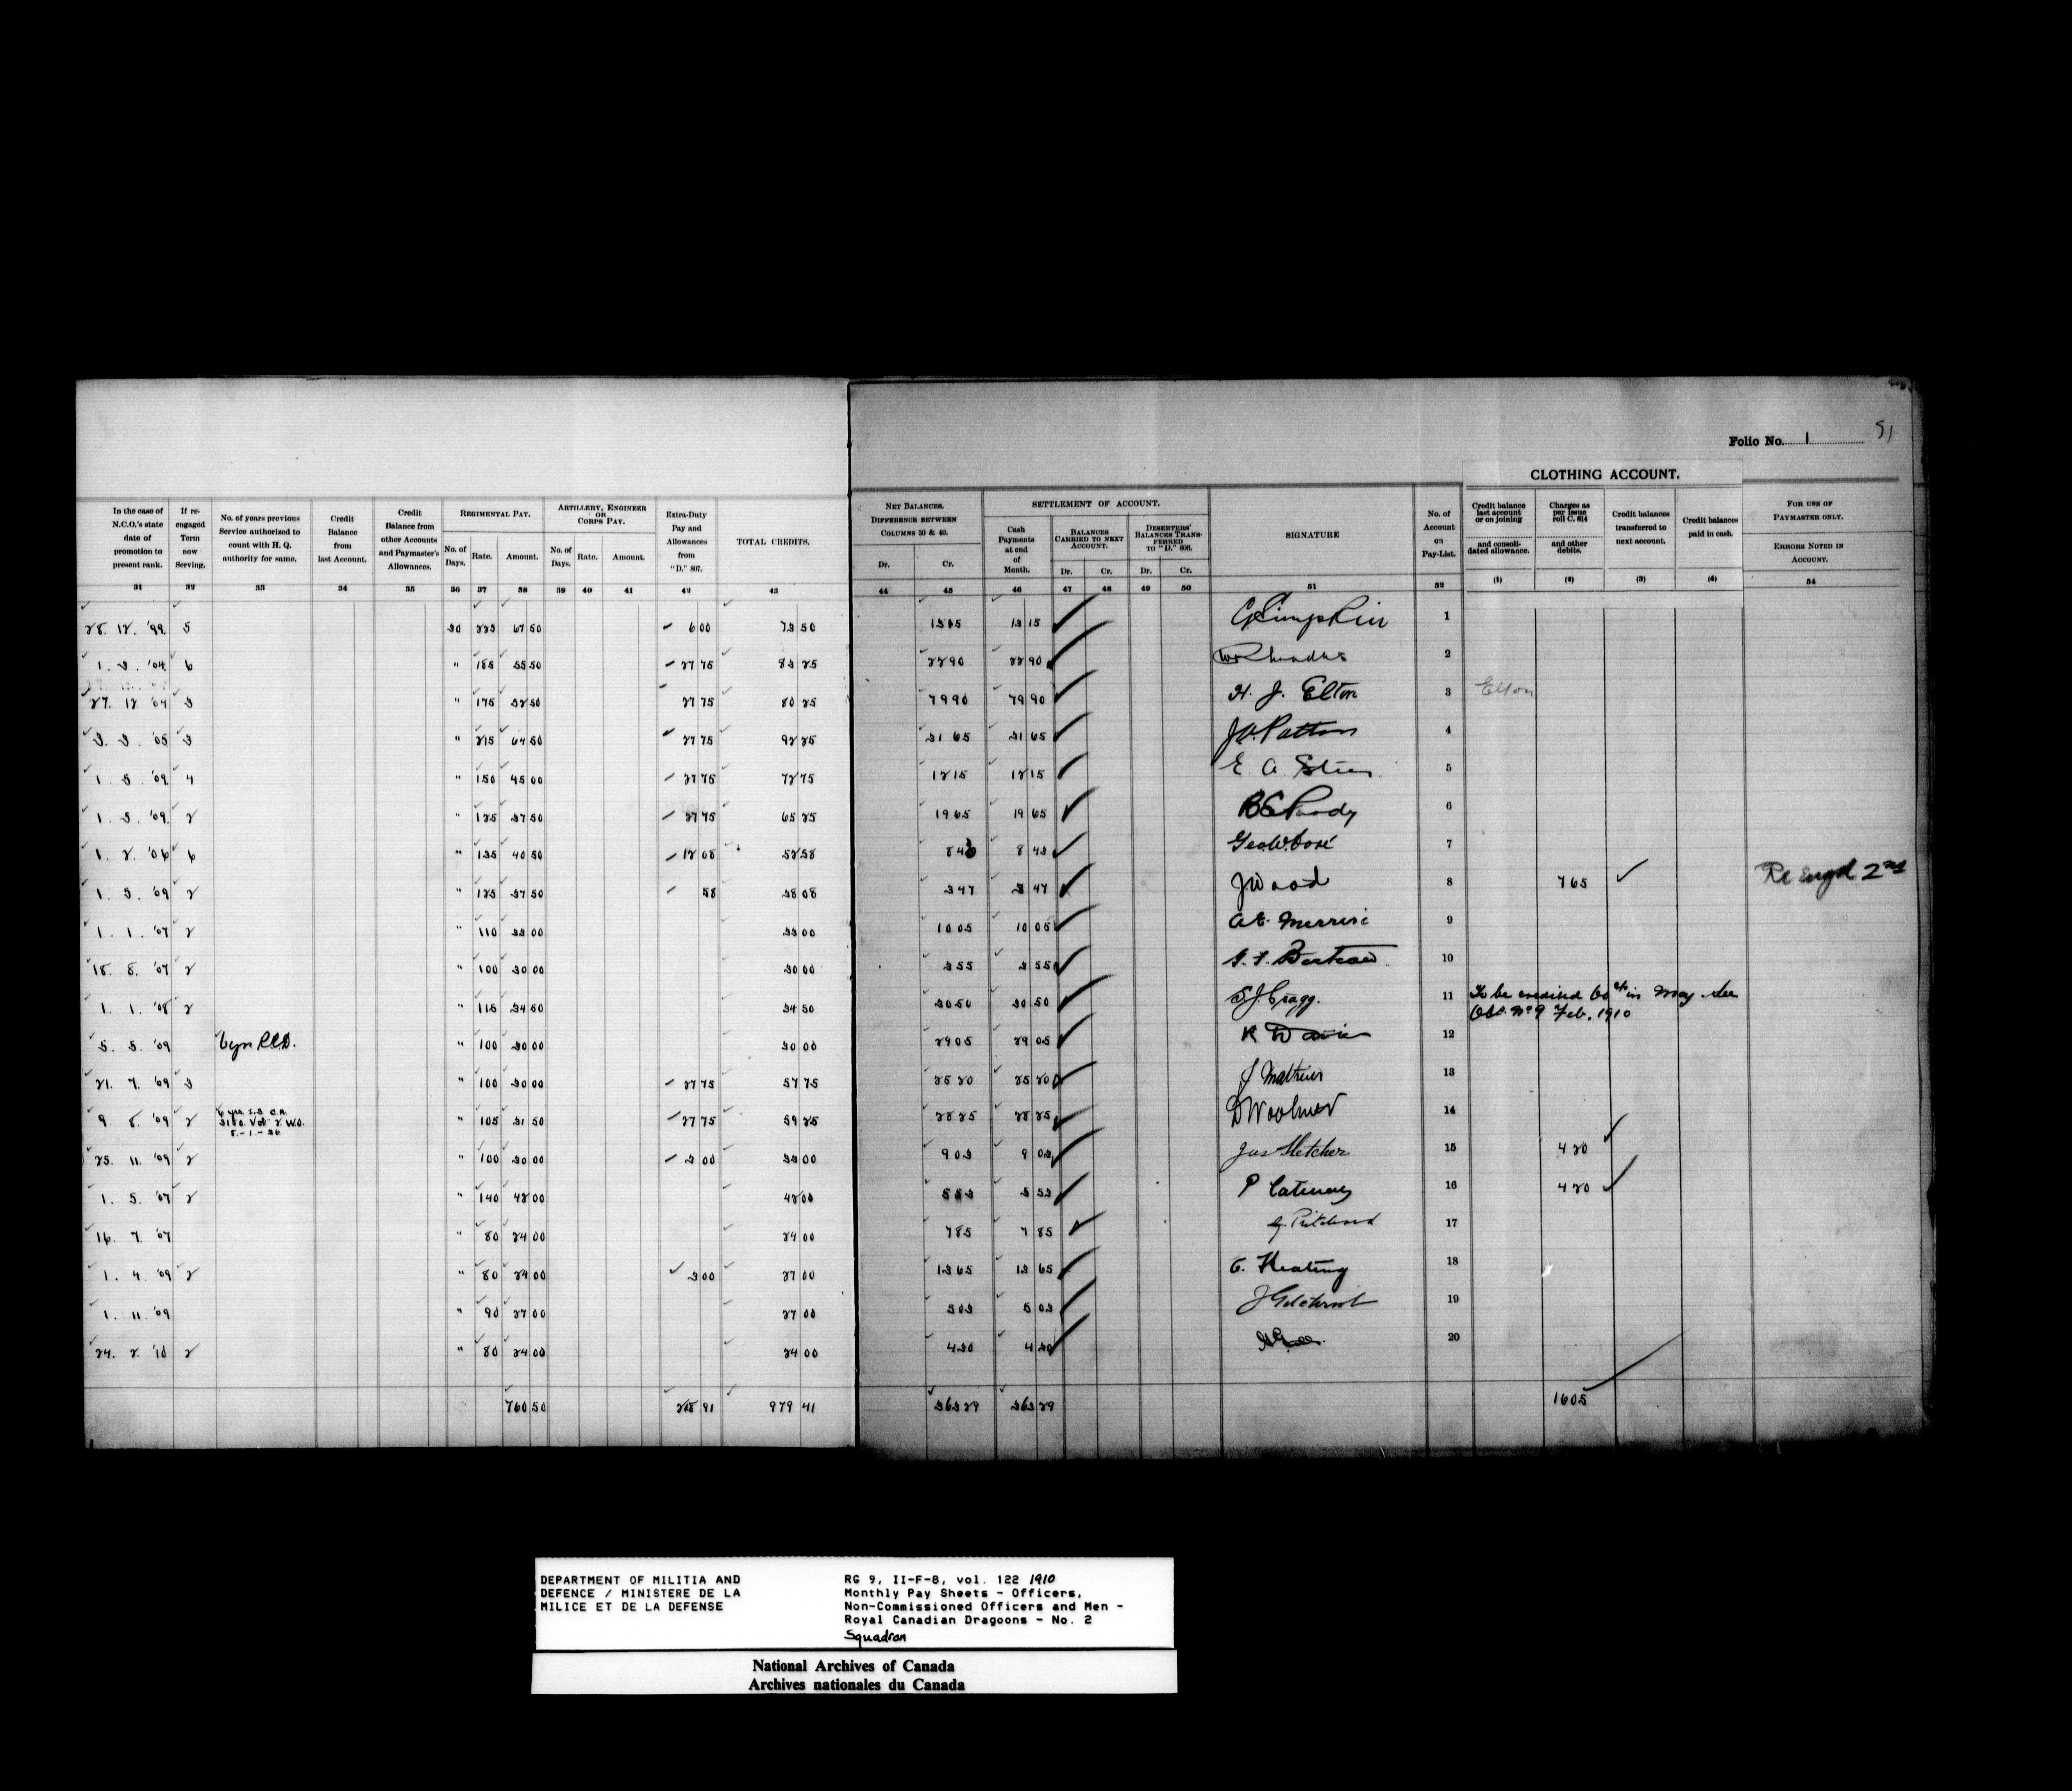 Folio No. 1 51
CLOTHING ACCOUNT.
In the case of N.C.O.'s state date of promotion to present rank.
If re-engaged Term now Serving.
No. of years previous Service authorized to count with H. Q. authority for same.
Credit Balance from last Account.
Credit Balance from other Accounts and Paymaster's Allowances.
REGIMENTAL PAY.
No. of Days. Rate. Amount.
ARTILLERY, ENGINEER OR CORPS PAY.
No. of Days. Rate. Amount.
Extra-Duty Pay and Allowances from "D." 807.
TOTAL CREDITS.
NET BALANCES. DIFFERENCE BETWEEN COLUMNS 30 & 40.
Dr. Cr.
SETTLEMENT OF ACCOUNT.
Cash Payments at end of Month.
BALANCES CARRIED TO NEXT ACCOUNT.
Dr. Cr.
DESERTERS' BALANCES TRANSFERRED TO "D." 806.
Dr. Cr.
SIGNATURE
No. of Account on Pay-List.
Credit balance last account or on joining and consolidated allowance.
Charges as per issue roll C. 614 and other debits.
Credit balances transferred to next account.
Credit balances paid in cash.
FOR USE OF PAYMASTER ONLY.
ERRORS NOTED IN ACCOUNT.
31 32 33 34 35 36 37 38 39 40 41 42 43 44 45 46 47 48 49 50 51 52 (1) (2) (3) (4) 54
28. 12. '99 5 30 225 67 50 6 00 73 50 13 15 C Simpkin 1
1. 3. '04 6 " 185 55 50 27 75 83 25 22 90 22 90 2
27. 12 '04 3 " 175 52 50 27 75 80 25 79 90 79 90 H. J. Elton 3 Elton
3. 3. '05 3 " 215 64 50 27 75 92 25 31 65 31 65 Patton 4
1. 3. '09 4 " 150 45 00 27 75 72 75 12 15 12 15 E A 5
1. 3. '09 2 " 125 37 50 27 75 65 25 19 65 19 65 6
1. 2. '06 6 " 135 40 50 12 08 52 58 8 43 8 43 Geo. W. 7
1. 5. '09 2 " 125 37 50 58 38 08 3 47 3 47 J Wood 8 7 65 Re Engd 2nd
1. 1. '07 2 " 110 33 00 33 00 10 05 10 05 A E. 9
18. 8. '07 2 " 100 30 00 30 00 3 55 3 55 10
1. 1. '08 2 " 115 34 50 34 50 30 50 30 50 S J Cragg. 11 To be credited in May. See
No 9 Feb. 1910
5. 5. '09 6 yrs R.C.D. " 100 30 00 30 00 29 05 29 05 R Davis 12
21. 7. '09 3 " 100 30 00 27 75 57 75 25 20 25 20 J Mathews 13
9. 8. '09 2 " 105 31 50 27 75 59 25 28 25 28 25 D Woolmer 14
25. 11. '09 2 " 100 30 00 3 00 33 00 9 03 9 03 Jas Fletcher 15 4 20
1. 5. '07 2 " 140 42 00 42 00 5 53 5 53 P 16 4 20
16. 7. '07 " 80 24 00 24 00 7 85 7 85 G. Pritchard 17
1. 4. '09 2 " 80 24 00 3 00 27 00 13 65 13 65 C. Keating 18
1. 11. '09 " 90 27 00 27 00 5 03 5 03 J Gilchrist 19
24. 2. '10 2 " 80 24 00 24 00 4 30 4 30 20
760 50 218 91 979 41 363 29 363 29 16 05
DEPARTMENT OF MILITIA AND
DEFENCE / MINISTERE DE LA
MILICE ET DE LA DEFENSE
RG 9, II-F-8, vol. 122 1910
Monthly Pay Sheets - Officers,
Non-Commissioned Officers and Men -
Royal Canadian Dragoons - No. 2
Squadron
National Archives of Canada
Archives nationales du Canada